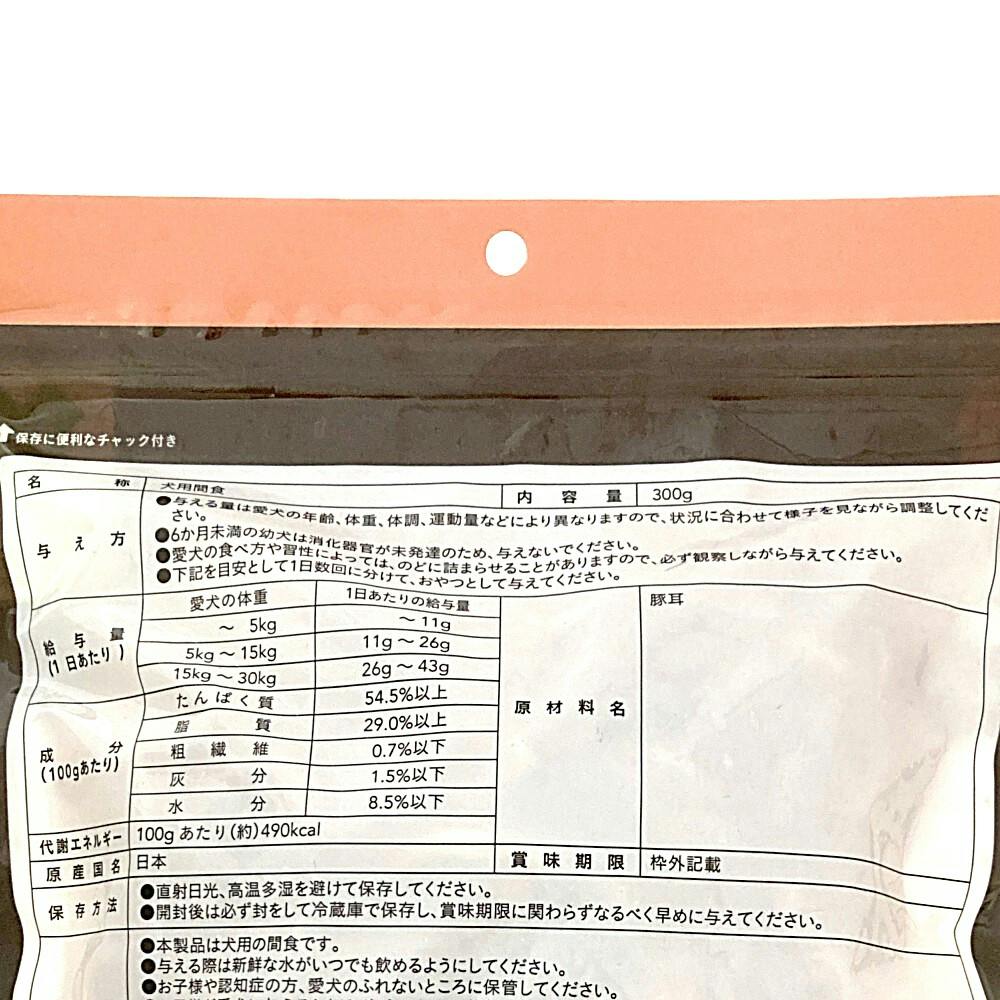 保存に便利なチャック付き
名称 犬用間食 内容量 300g
与え方
●与える量は愛犬の年齢、体重、体調、運動量などにより異なりますので、状況に合わせて様子を見ながら調整してくだ
さい。
●6か月未満の幼犬は消化器官が未発達のため、与えないでください。
●愛犬の食べ方や習性によっては、のどに詰まらせることがありますので、必ず観察しながら与えてください。
●下記を目安として1日数回に分けて、おやつとして与えてください。
給与量
(1日あたり)
愛犬の体重 1日あたりの給与量
～ 5kg ～11g
5kg～15kg 11g～26g
15kg～30kg 26g～43g
成分
(100gあたり)
たんぱく質 54.5%以上
脂質 29.0%以上
粗繊維 0.7%以下
灰分 1.5%以下
水分 8.5%以下
原材料名 豚耳
代謝エネルギー 100gあたり(約)490kcal
原産国名 日本 賞味期限 枠外記載
保存方法
●直射日光、高温多湿を避けて保存してください。
●開封後は必ず封をして冷蔵庫で保存し、賞味期限に関わらずなるべく早めに与えてください。
●本製品は犬用の間食です。
●与える際は新鮮な水がいつでも飲めるようにしてください。
●お子様や認知症の方、愛犬のふれないところに保管してください。